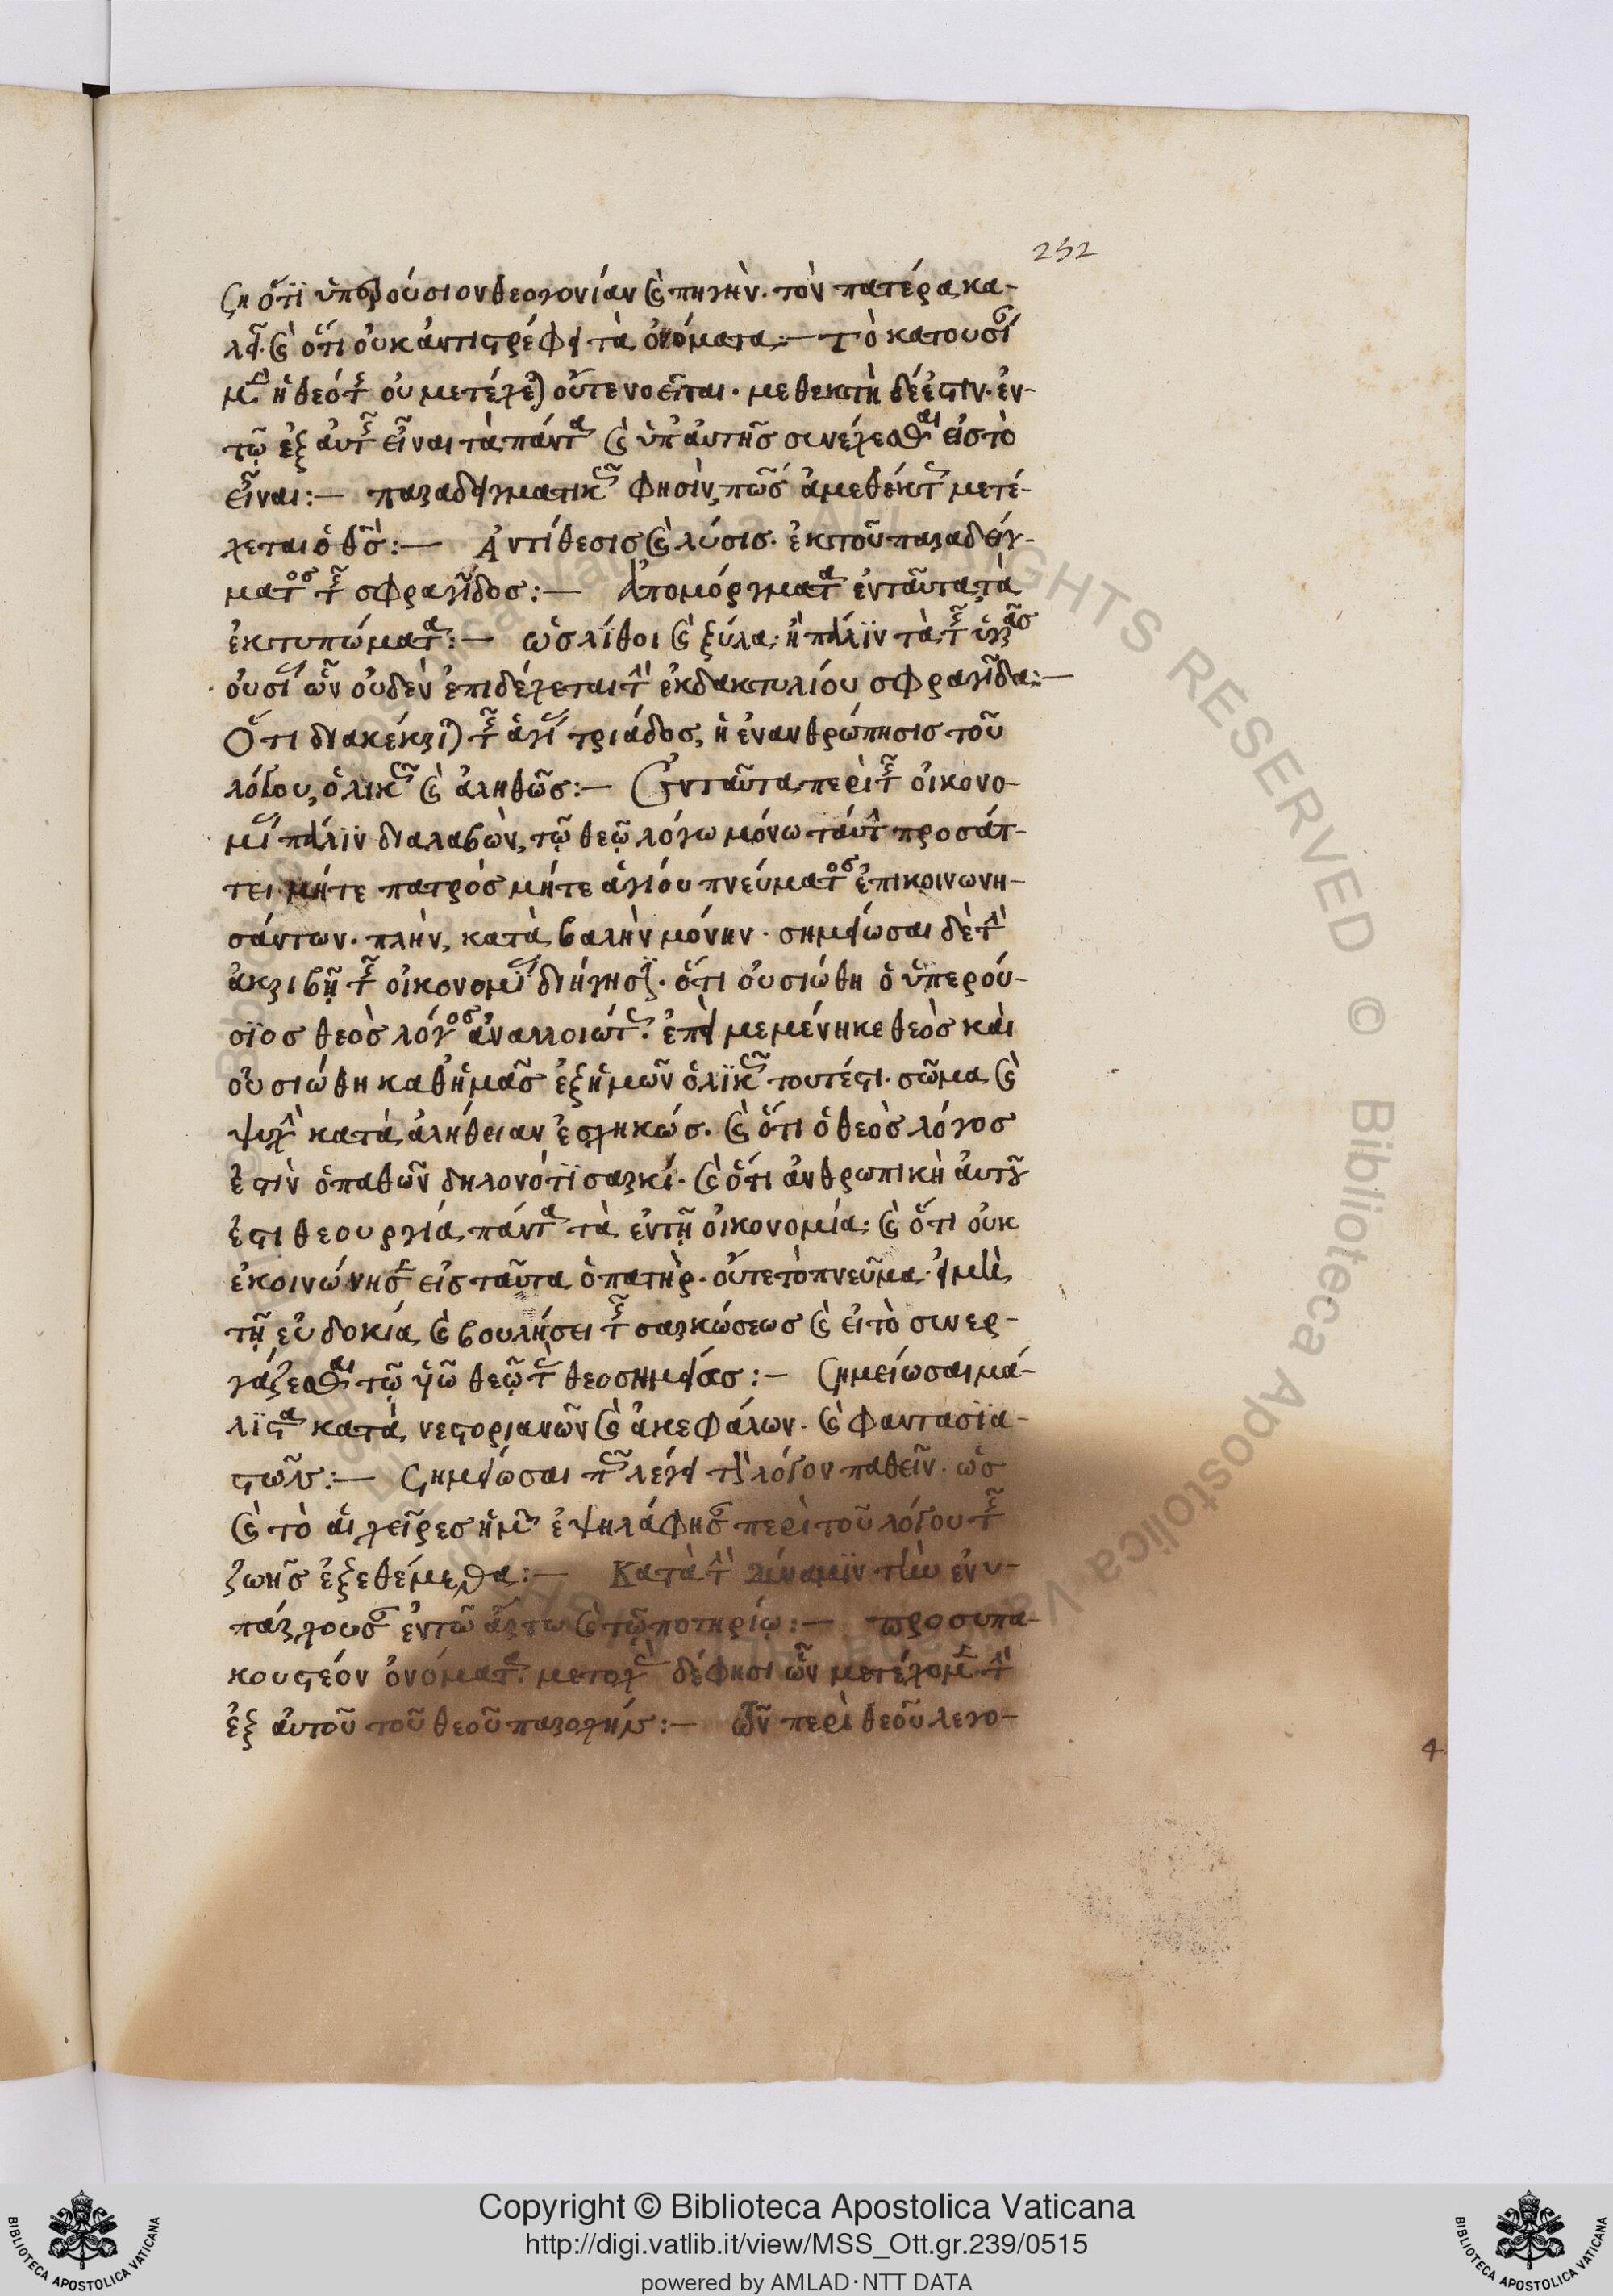 232
ση ὅτι ὑπερούσιον θεογονίαν καὶ πηγὴν τὸν πατέρα κα-
λεῖ· καὶ ὅτι οὐκ ἀντιστρέφει τὰ ὀνόματα:— Τὸ κατουσί
μὲν ἡ θεότης οὐ μετέχεται οὔτε νοεῖται· μεθεκτὴ δέ ἐστιν· ἐν
τῷ ἐξ αὐτῆς εἶναι τὰ πάντα καὶ ὑπ' αὐτῆς συνέχεσθαι εἰς τὸ
εἶναι:— παραδειγματικῶς φησὶν, πῶς ἀμεθέκτως μετέ-
χεται ὁ θς:— Ἀντίθεσις καὶ λύσις· ἐκ τοῦ παραδείγ-
ματος τῆς σφραγῖδος:— Ἀπομόργματα ἐνταῦτα, τὰ
ἐκτυπώματα:— ὡς λίθοι καὶ ξύλα· ἢ πάλιν τὰ τῆς ὑγρᾶς
οὐσίας ὧν οὐδὲν ἐπιδέχεται τὴν ἐκ δακτυλίου σφραγῖδα:—
Ὅτι διακέκριται τῆς ἁγίας τριάδος, ἡ ἐνανθρώπησις τοῦ
λόγου, ὁλικῶς καὶ ἀληθῶς:— Ἐνταῦτα, περὶ τῆς οἰκονο-
μίας πάλιν διαλαβὼν, τῷ θεῷ λόγω μόνω ταύτην προσάπ-
τει· μήτε πατρός μήτε ἁγίου πνεύματος ἐπικοινωνη-
σάντων· πλὴν, κατὰ βαλὴν μόνην· σημείωσαι δὲ τὴν
ἀκριβῆ τῆς οἰκονομίας διήγησιν· ὅτι οὐσιώθη ὁ ὑπερού-
σιος θεὸς λόγος ἀναλλοιώτως· ἐπεὶ μεμένηκε θεὸς καὶ
οὐσιώθη καθ' ἡμᾶς ἐξ ἡμῶν ὁλικῶς τουτέστι· σῶμα καὶ
ψυχὴν κατὰ ἀλήθειαν ἐσχηκώς· καὶ ὅτι ὁ θεὸς λόγος
ἐστὶν ὁ παθὼν δηλονότι σαρκί· καὶ ὅτι ἀνθρωπικὴ αὐτοῦ
ἐστι θεουργία, πάντα τὰ ἐν τῇ οἰκονομία· καὶ ὅτι οὐκ
ἐκοινώνησεν εἰς ταῦτα ὁ πατὴρ· οὔτε τὸ πνεῦμα· εἰ μὴ
τῇ εὐδοκία καὶ βουλήσει τῆς σαρκώσεως καὶ εἰ τὸ συνερ-
γάζεσθαι τῷ υἱῶ θεῷ τὰς θεοσημείας:— Σημείωσαι μά-
λιστα κατὰ νεστοριανῶν καὶ ἀκεφάλων· καὶ φαντασια-
στῶν:— Σημείωσαι πῶς λέγει τὸν λόγον παθεῖν· ὡς
καὶ τὸ αἱ χεῖρες ἡμῶν ἐψηλάφησαν περὶ τοῦ λόγου τῆς
ζωῆς ἐξεθέμεθα:— Κατὰ τὴν δύναμιν τὴν ἐνυ-
πάρχουσαν ἐν τῶ ἄρτω καὶ τῷ ποτηρίῳ:— προσυπα-
κουστέον ὀνόματα· μετοχὰς δέ φησι ὧν μετέχομεν τὴν
ἐξ αὐτοῦ τοῦ θεοῦ παροχήν:— Ὧν περὶ θεοῦ λεγο-
4
Copyright © Biblioteca Apostolica Vaticana
http://digi.vatlib.it/view/MSS_Ott.gr.239/0515
powered by AMLAD·NTT DATA